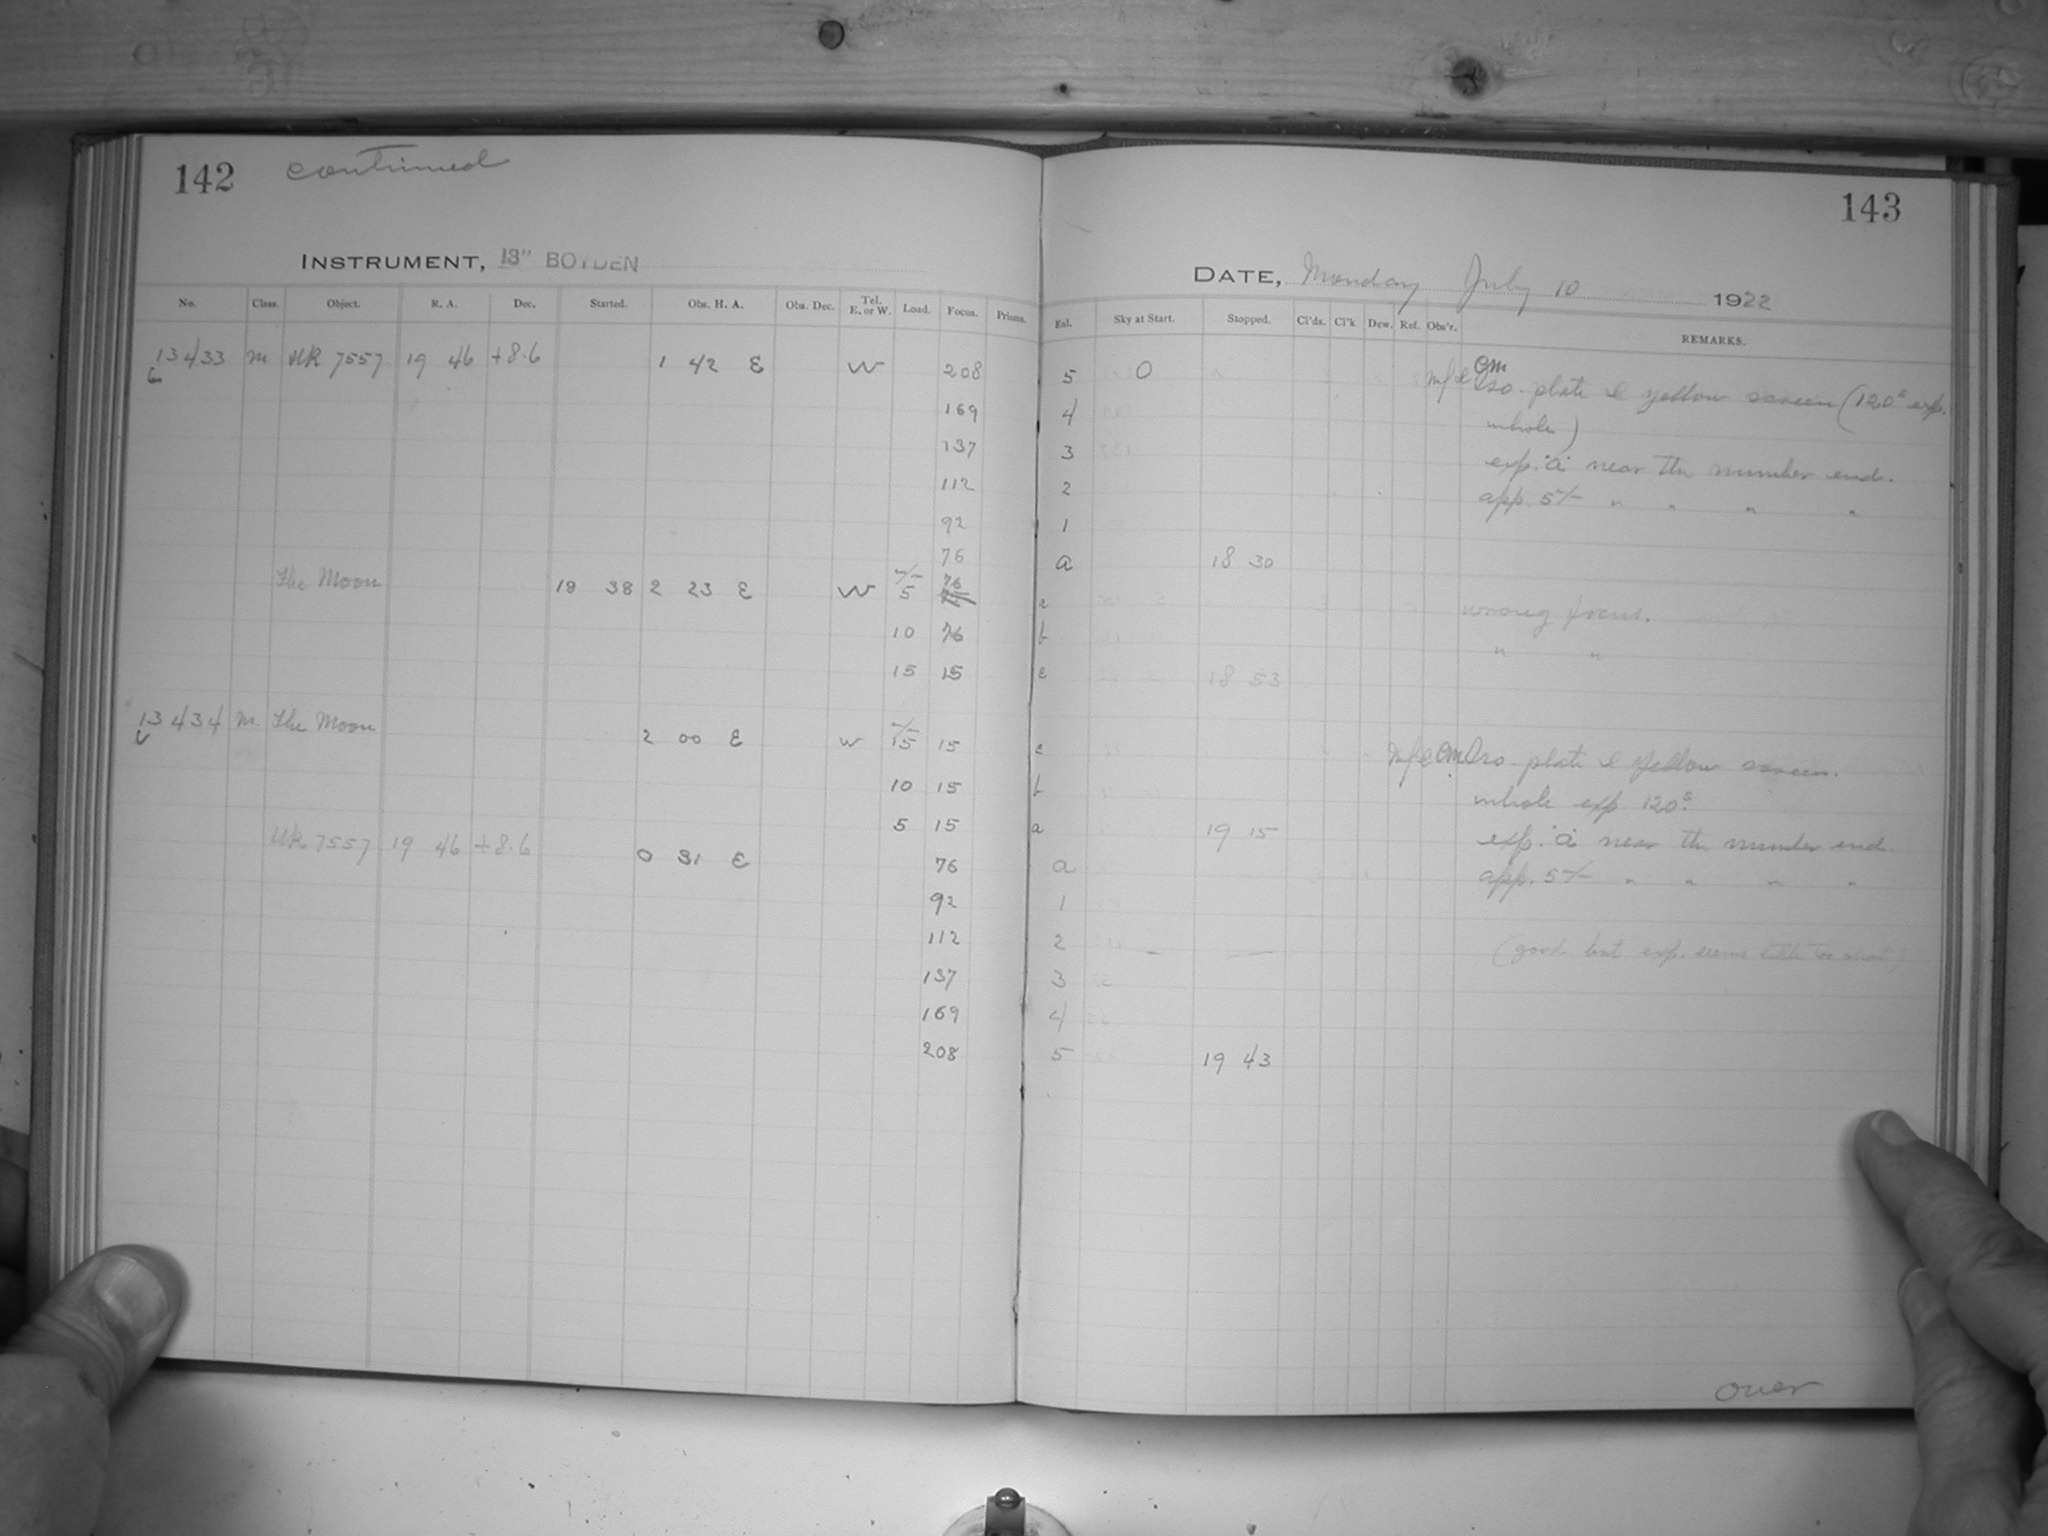 142 continued
INSTRUMENT, 13" BOYDEN
No. Class. Object. R. A. Dec. Started. Obs. H. A. Obs. Dec. Tel. E. or W. Load. Focus. Prisms.
13433 m HR 7557 19 46 +8.6 1 42 E W 208
169
137
112
92
76
The Moon 18 38 2 23 E W 5 76
10 76
15 15
13434 m. The Moon 2 00 E W 15 15
10 15
5 15
HR 7557 19 46 +8.6 0 31 E 76
92
112
137
169
208
143
DATE, Monday July 10 1922
Exl. Sky at Start. Stopped. Cl'ds. Cl'k Dew. Ref. Obs'r. REMARKS.
5 0 Iso. plate & yellow screen (120s exp.
4 whole)
3 exp. "a" near the number end.
2 app. 5 " " " "
1
a 18 30
a wrong focus.
b " "
c 18 53
c Iso. plate & yellow screen.
b whole exp. 120s
a 19 15 exp. "a" near the number end.
a app. 5 " " " "
1
2 (good but exp. seems little too short)
3
4
5 19 43
over